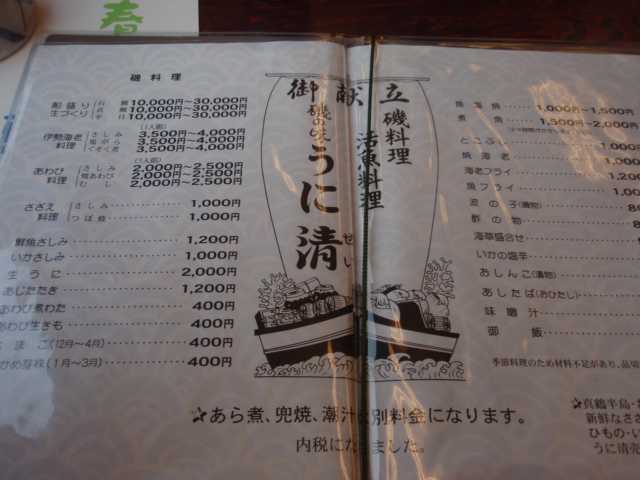 春
磯料理
船盛り 石鯛 10,000円〜30,000円
生づくり 真鯛 10,000円〜30,000円
平目 10,000円〜30,000円
(1人前)
伊勢海老 さしみ 3,500円〜4,000円
料理 鬼がら 3,500円〜4,000円
ぐそく煮 3,500円〜4,000円
(1人前)
あわび さしみ 2,000円〜2,500円
料理 焼あわび 2,000円〜2,500円
むし 2,000円〜2,500円
さざえ さしみ 1,000円
料理 つぼ焼 1,000円
鮮魚さしみ 1,200円
いかさしみ 1,000円
生うに 2,000円
あじたたき 1,200円
あわび煮わた 400円
あわび生きも 400円
まこ(12月〜4月) 400円
かめ芽株(1月〜3月) 400円
御献立
磯料理
活魚料理
磯の味
うに清
せい
魚塩焼 1,000円〜1,500円
煮魚 1,500円〜2,000円
とこぶし 1,000
焼海老 1,000
海老フライ 1,200
魚フライ 1,000
波の子(磯物)
酢の物
海草盛合せ
いかの塩辛
おしんこ(漬物)
あしたば(おひたし)
味噌汁
御飯
季節料理のため材料不足があり、品切
☆あら煮、兜焼、潮汁は別料金になります。
内税になりました。
☆真鶴半島・
新鮮なさざ
ひもの・い
うに清売